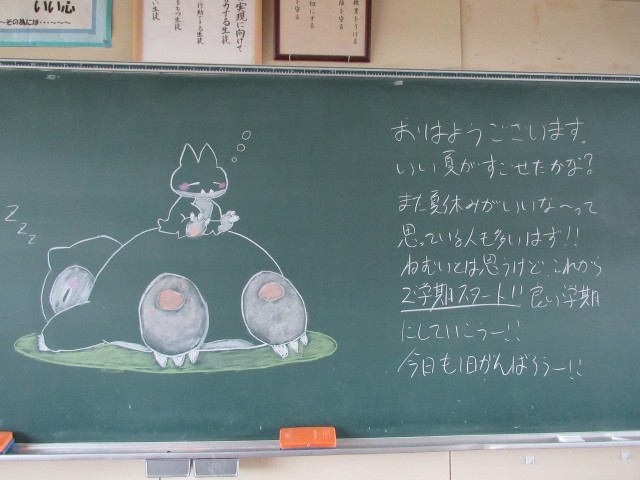 いい心
～その為には・・・・・～
実現に向けて
力する生徒
行動できる生徒
もつ生徒
おはようございます。
いい夏がすごせたかな？
まだ夏休みがいいな～って
思っている人も多いはず!!
ねむいとは思うけど、これから
2学期スタート!! 良い学期
にしていこうー!!
今日も1日がんばろうー!!
z z z